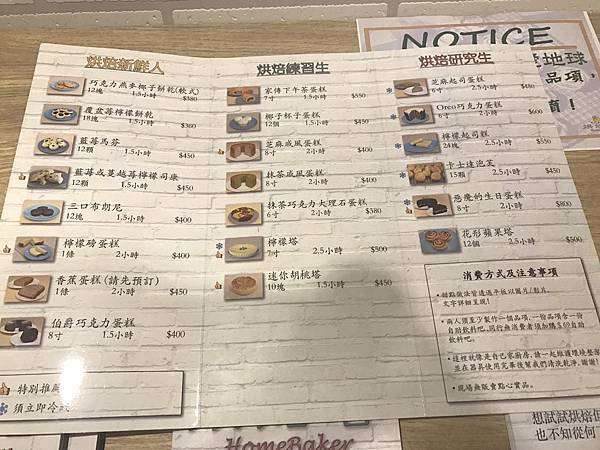 NOTICE
烘焙新鮮人
巧克力燕麥椰子餅乾(軟式)
12塊 1.5小時 $380
覆盆莓檸檬餅乾
18塊 1.5小時 $360
藍莓馬芬
12顆 1.5小時 $450
藍莓或蔓越莓檸檬司康
12塊 1.5小時 $450
三口布朗尼
12塊 1.5小時 $400
檸檬磅蛋糕
1條 2小時 $400
香蕉蛋糕(請先預訂)
1條 2小時 $450
伯爵巧克力蛋糕
8寸 1.5小時 $400
特別推薦
須立即冷藏
烘焙練習生
家傳下午茶蛋糕
7寸 1.5小時 $550
椰子杯子蛋糕
12個 1.5小時 $450
芝麻戚風蛋糕
8寸 2小時 $400
抹茶戚風蛋糕
8寸 2小時 $400
抹茶巧克力大理石蛋糕
6寸 2小時 $380
檸檬塔
7寸 2.5小時 $500
迷你胡桃塔
10塊 1.5小時 $450
烘焙研究生
芝麻起司蛋糕
6寸 2.5小時 $480
Oreo巧克力蛋糕
6寸 2小時 $600
檸檬起司糕
24塊 2.5小時 $550
卡士達泡芙
15顆 2.5小時 $450
惡魔的生日蛋糕
8寸 2小時 $800
花形蘋果塔
12個 2.5小時 $500
消費方式及注意事項
甜點做法皆透過平板以圖片/影片、
文字詳細呈現!
兩人須至少製作一個品項,一份品項含一份
自助飲料吧,同行無消費者須加購$69自助
飲料吧。
這裡就像是自己家廚房,請一起維護環境整潔
並在器具使用完畢後幫我們清洗乾淨,謝謝!
現場無販賣點心實品。
愛地球
品項,
HomeBaker
想試試烘焙但
也不知從何下